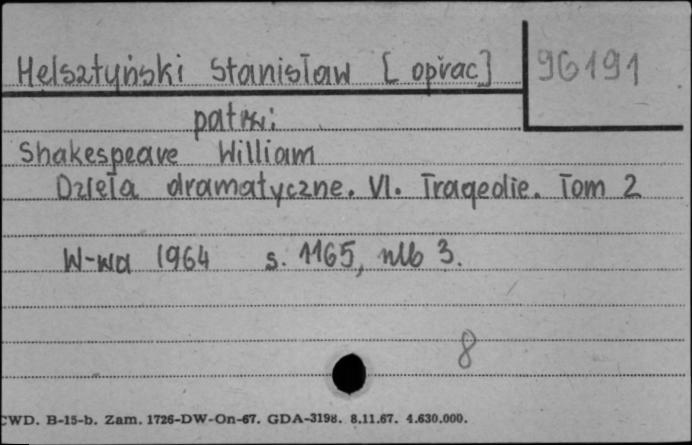 Helsztyński Stanisław [oprac] 96191
patrz:
Shakespeare William
Dzieła dramatyczne. VI. Tragedie. Tom 2
W-wa 1964 s. 1165, nlb 3.
8
CWD. B-15-b. Zam. 1726-DW-On-67. GDA-3198. 8.11.67. 4.630.000.